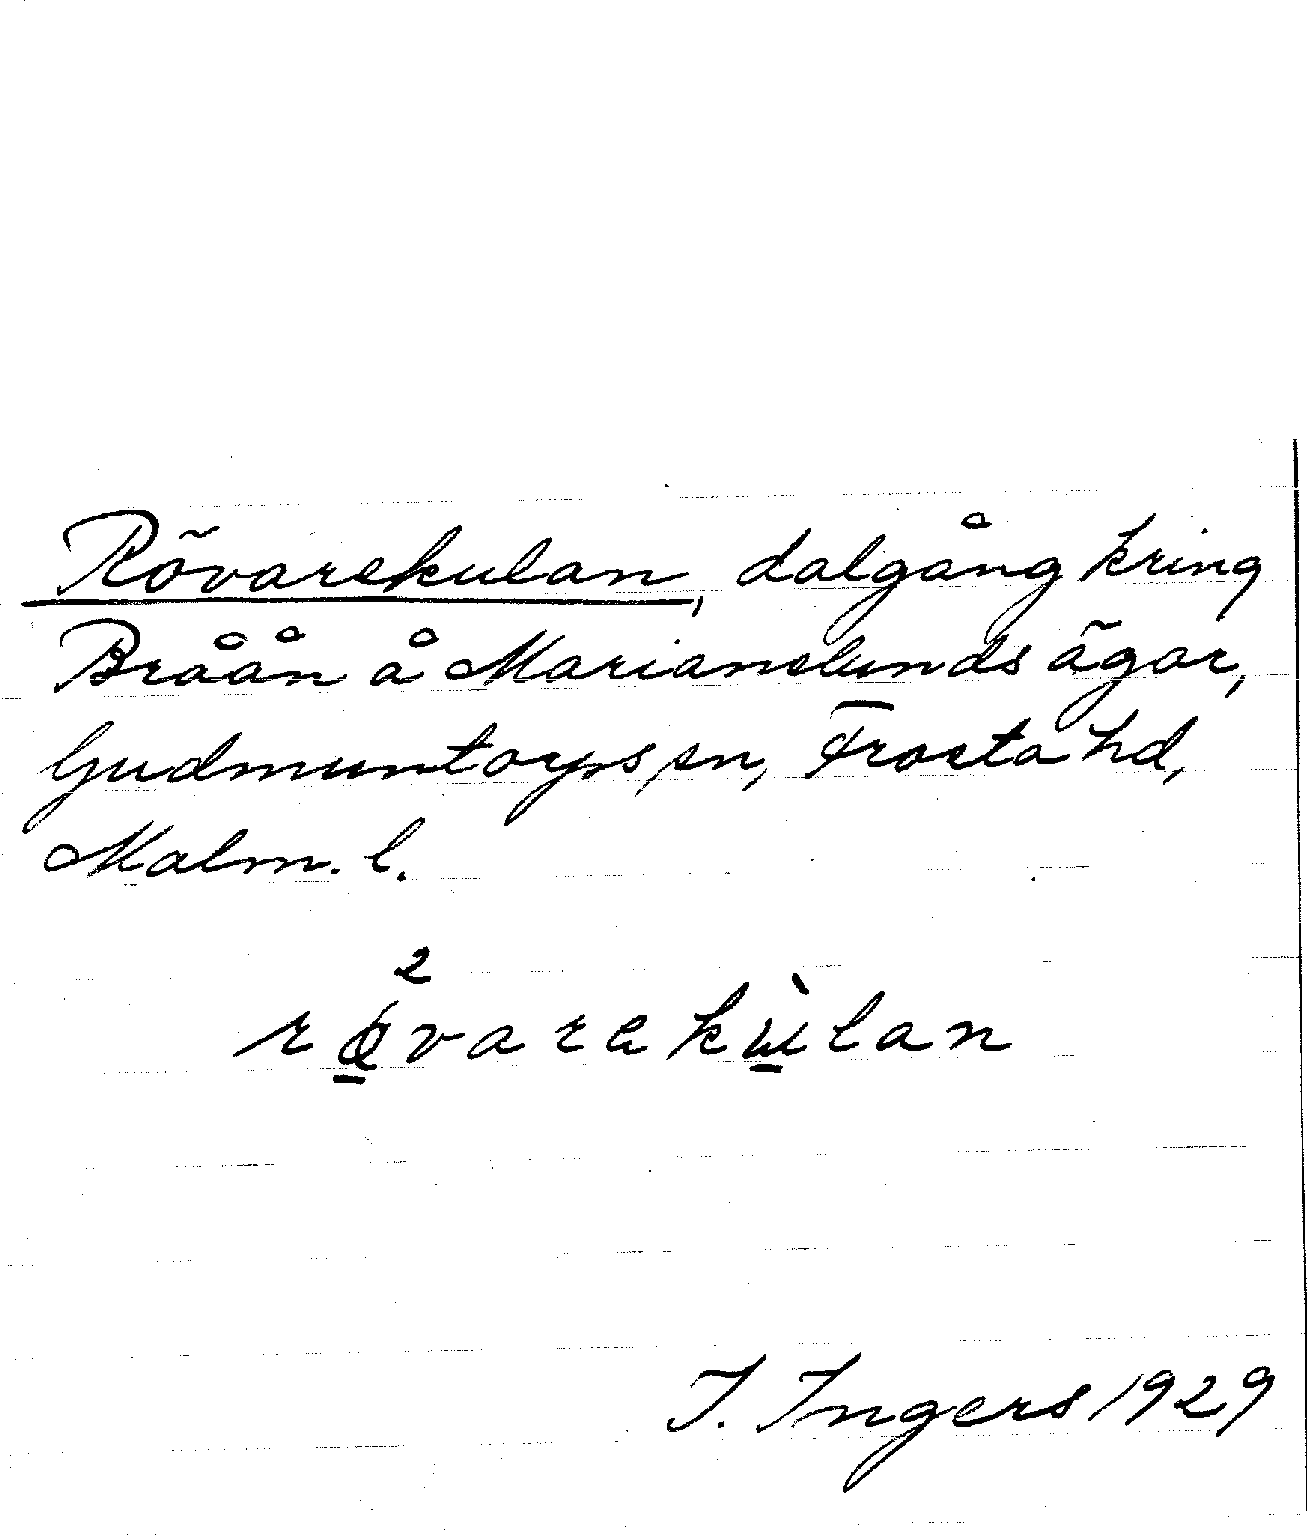 Rövarekulan, dalgång kring
Bråån å Marianelunds ägor,
Gudmuntorps sn, Frosta hd,
Malm. l.
2
rø̱varekù̱lan
I. Ingers 1929